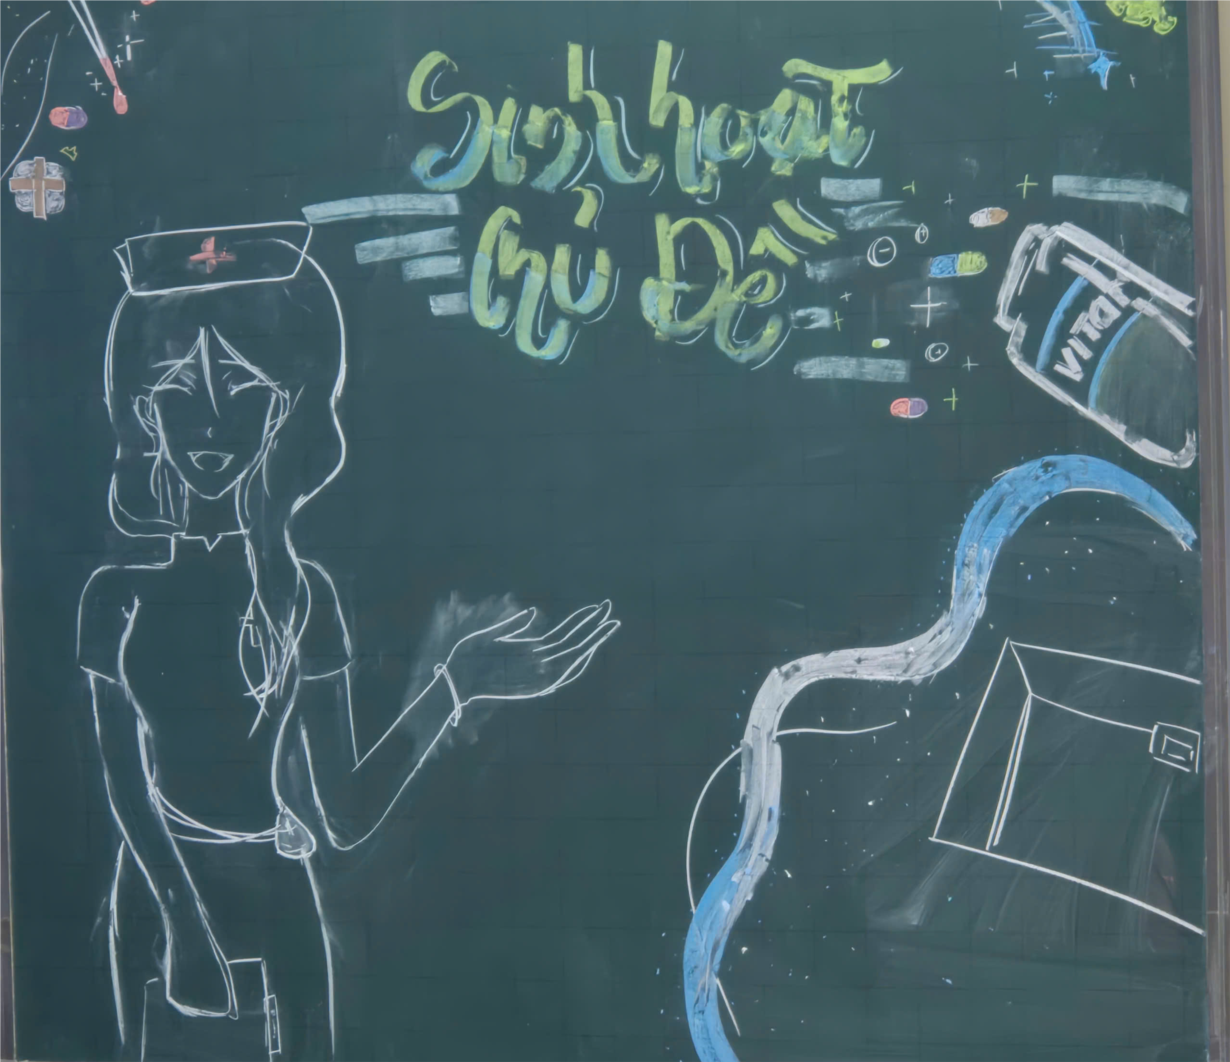 Sinh hoạT
Chủ Đề
VITAM